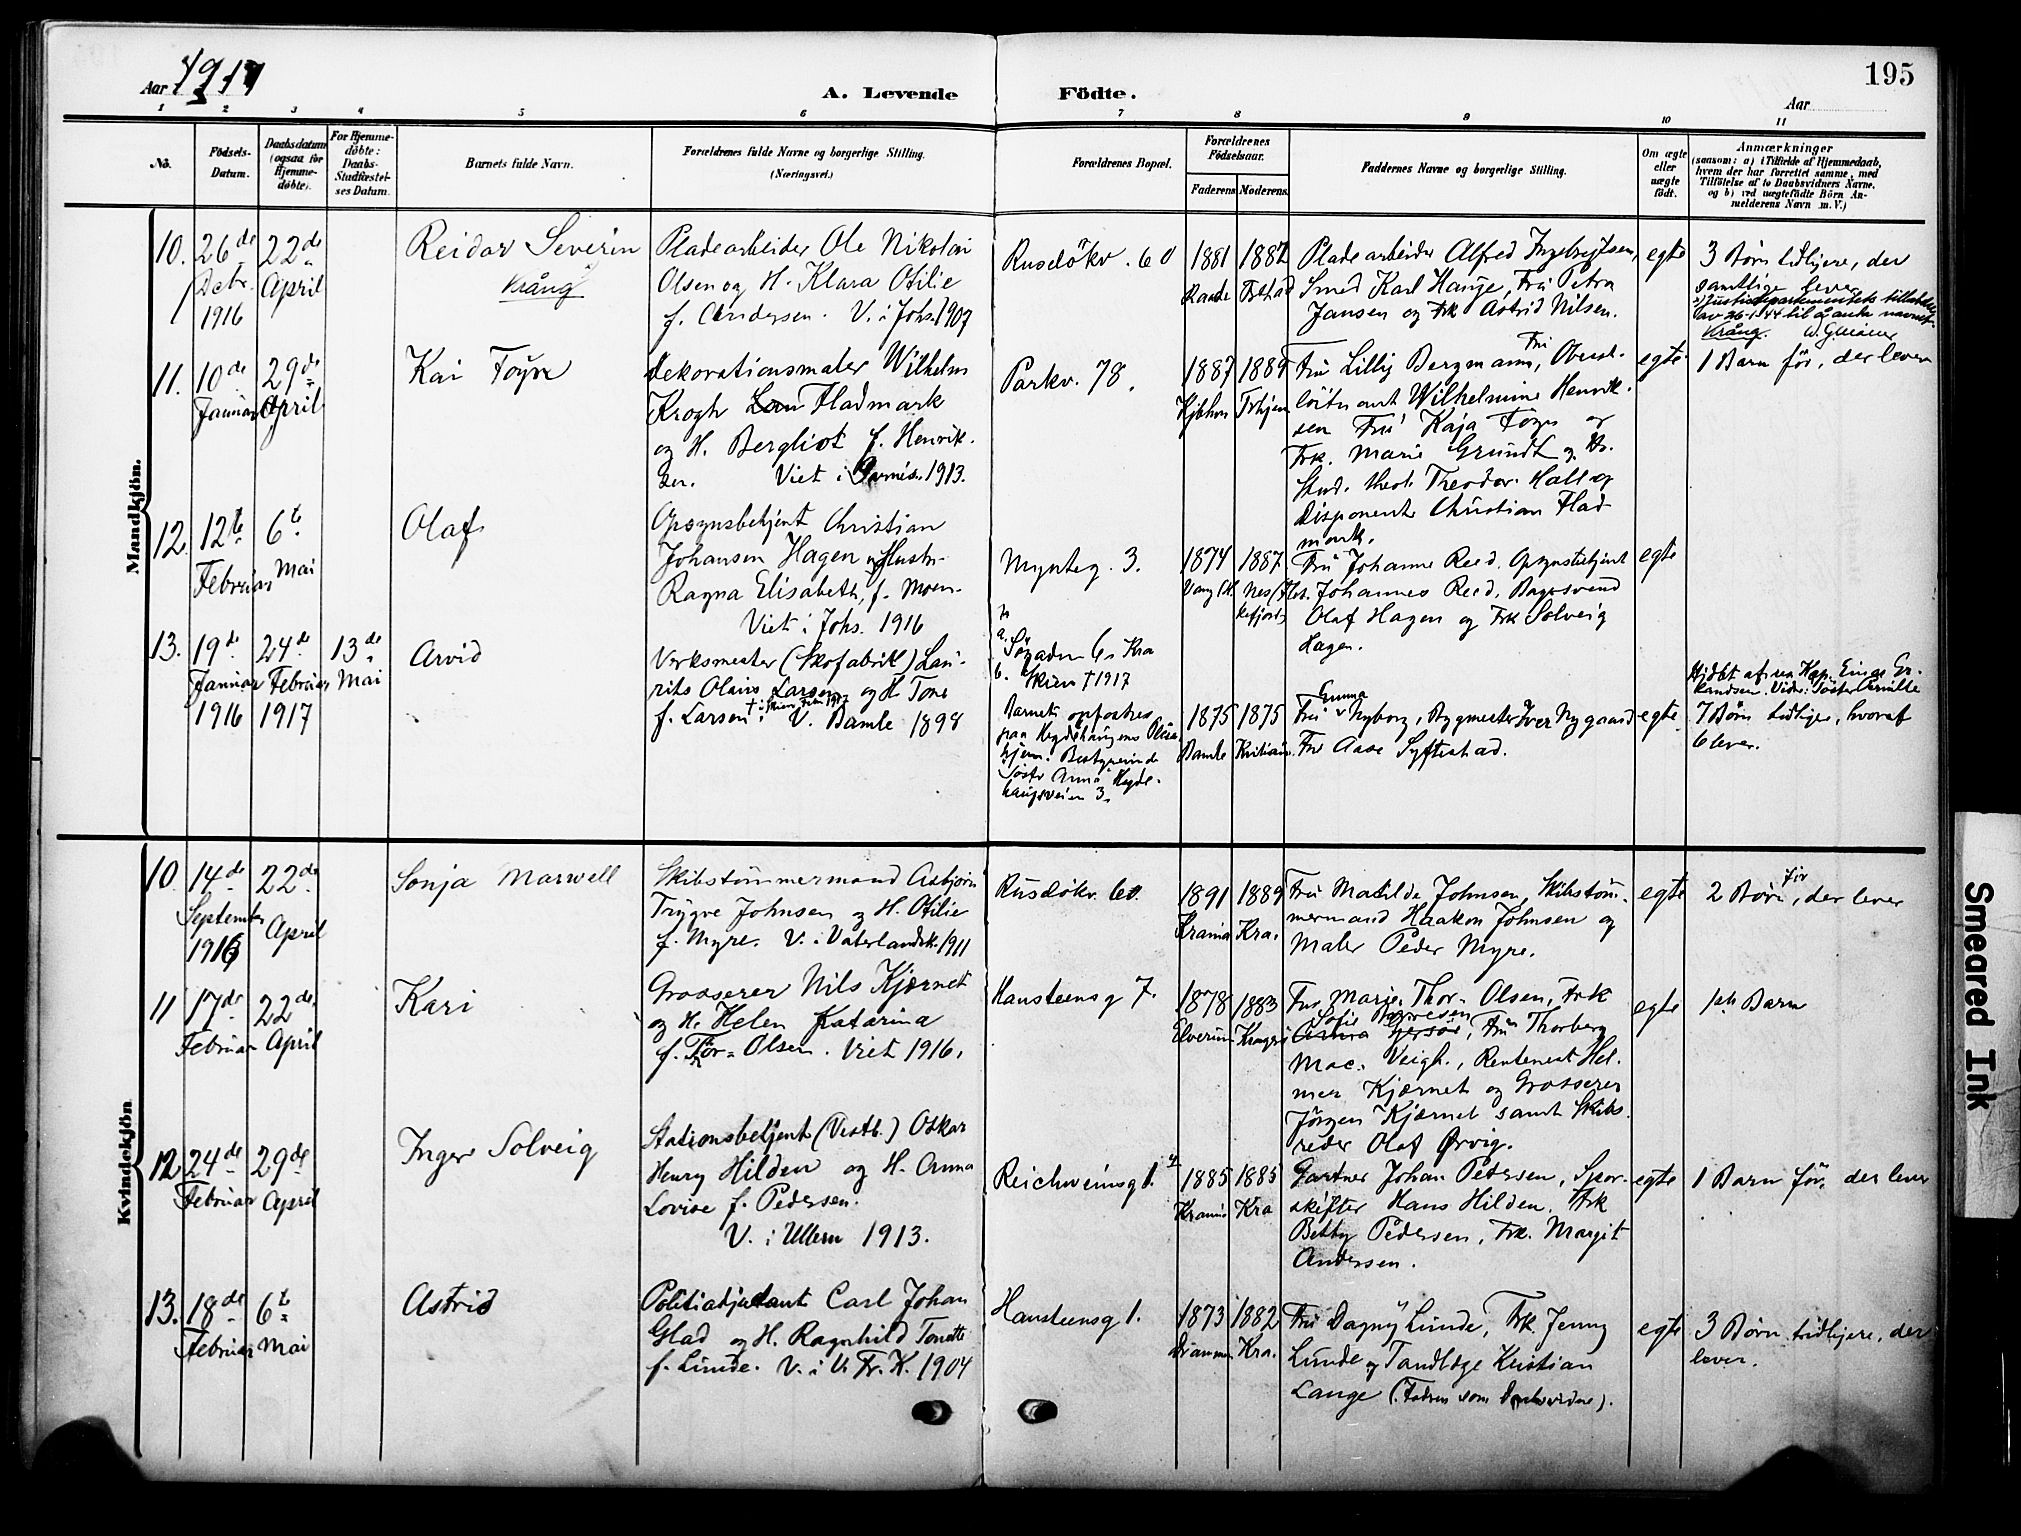 195
Aar 1917
A. Levende Födte.
Aar
1 2 3 4 5 6 7 8 9 10 11
No.
Födsels-
Datum.
Daabsdatum
(ogsaa for
Hjemme-
døbte).
For Hjemme-
døbte:
Daabs-
Stadfæstel-
ses Datum.
Barnets fulde Navn.
Forældrenes fulde Navne og borgerlige Stilling.
(Næringsvei.)
Forældrenes Bopæl.
Forældrenes
Födselsaar.
Faderens Moderens
Faddernes Navne og borgerlige Stilling.
Om ægte
eller
uægte
födt.
Anmærkninger
(saasom: a) i Tilfælde af Hjemmedaab,
hvem der har forrettet samme, med
Tilföielse af to Daabsvidners Navne,
og b) ved uægtefödte Börn An-
melderens Navn m. V.)
Mandkjön.
10. 26de Decbr. 1916
22de April
Reidar Severin
Krång
Pladearbeider Ole Nikolai
Olsen og H. Klara Otilie
f. Andersen. V. i Johs. 1907
Rusdökv. 60
1881 Raade
1887
Pladearbeider Alfred Ingebrigtsen,
Smed Karl Hauge, Fru Petra
Jansen og Frk Astrid Nilsen.
egte
3 Börn tidligere, der
samtlige lever
Justisdepartementets tillatelse
av 26-1-44 til å anta navnet
Krång.
11. 10de Januar
29de April
Kai Foyn
Dekorationsmaler Wilhelm
Krogh Fladmark
og H. Bergliot f. Henrik-
sen. Viet i 1913.
Parkv. 78.
1887 Kjbhvn
1889
Fru Lillij Bergmann, Fru Oberst-
löitnant Wilhelmine Henrik-
sen Fru Kaja Foyn og
Frk. Marie Grundt og Hr.
Stud. theol. Theodor Hall og
Disponent Christian Flad-
mark.
egte
1 Barn för, der lever
12. 12te Februar
6te Mai
Olaf
Opsynsbetjent Christian
Johansen Hagen og Hustru
Ragna Elisabeth, f. Moen.
Viet i Johs. 1916
Myntg. 3.
1874
1887
Fru Johanne Reed, Opsynsbetjent
Johannes Reed, Bagersvend
Olaf Hagen og Frk Solveig
Hagen.
egte
13. 19de Januar 1916
24de Februar 1917
13de Mai
Arvid
Verksmester (Skofabrik) Lau-
rits Olaus Larsen og H. Tone
f. Larsen V. Bamle 1898
a. Søgaden 6, Kra
b. Skien † 1917
Barnet opfostres
paa Hegdehaugens Pleie-
hjem. Bestyrerinde
Söster Anna Hegde-
haugsveien 3.
1875 Bamle
1875
Fru Gunna Nyborg, Bygmester Iver Nygaard
Fru Aase Syftestad.
egte
7 Börn tidligere, hvoraf
6 lever.
Kvindekjön
10. 14de September 1916
22de April
Sonja Marwell
Skibstömmermand Asbjörn
Trygve Johnsen og H. Otilie
f. Myre. V. i Vaterlandsk. 1911
Rusdökv. 60.
1891 Krania
1889 Kra.
Fru Matilde Johnsen, Skibstöm-
mermand Haakon Johnsen og
Maler Peder Myre.
egte
2 Börn för, der lever
11 17de Februar
22de April
Kari
Grosserer Nils Kjærnet
og H. Helen Katarina
f. Tor-Olsen. Viet 1916.
Hansteensg 7.
1878 Elverum
1883 Kragerö
Fru Marie Thor-Olsen, Frk
Sofie
Fru Thorberg
Mac. Veigh., Rentenest Hel-
mer Kjærnet og Grosserer
Jörgen Kjærnet samt Skibs-
reder Olaf Ørvig.
egte
1ste Barn
12 24de Februar
29de April
Inger Solveig
Stationsbetjent (Vestb.) Oskar
Henry Hilden og H. Anna
Lovise f. Pedersen.
V. i Ullern 1913.
Reichweinsg 1.
1885 Krania
1885 Kra
Gartner Johan Petersen, Spor-
skifter Hans Hilden, Frk
Betty Pedersen, Frk. Margit
Andersen.
egte
1 Barn för, der lever
13. 18de Februar
6te Mai
Astrid
Politiadjutant Carl Johan
Glad og H. Ragnhild Tonette
f. Lunde. V. i V. Fr. K. 1904
Hansteensg 1.
1873 Drammen
1882 Kra.
Fru Dagny Lunde, Frk. Jenny
Lunde og Tandlæge Kristian
Lange (Fadren som Daabsvidne).
egte
3 Börn tidligere, der
lever.
Smeared Ink